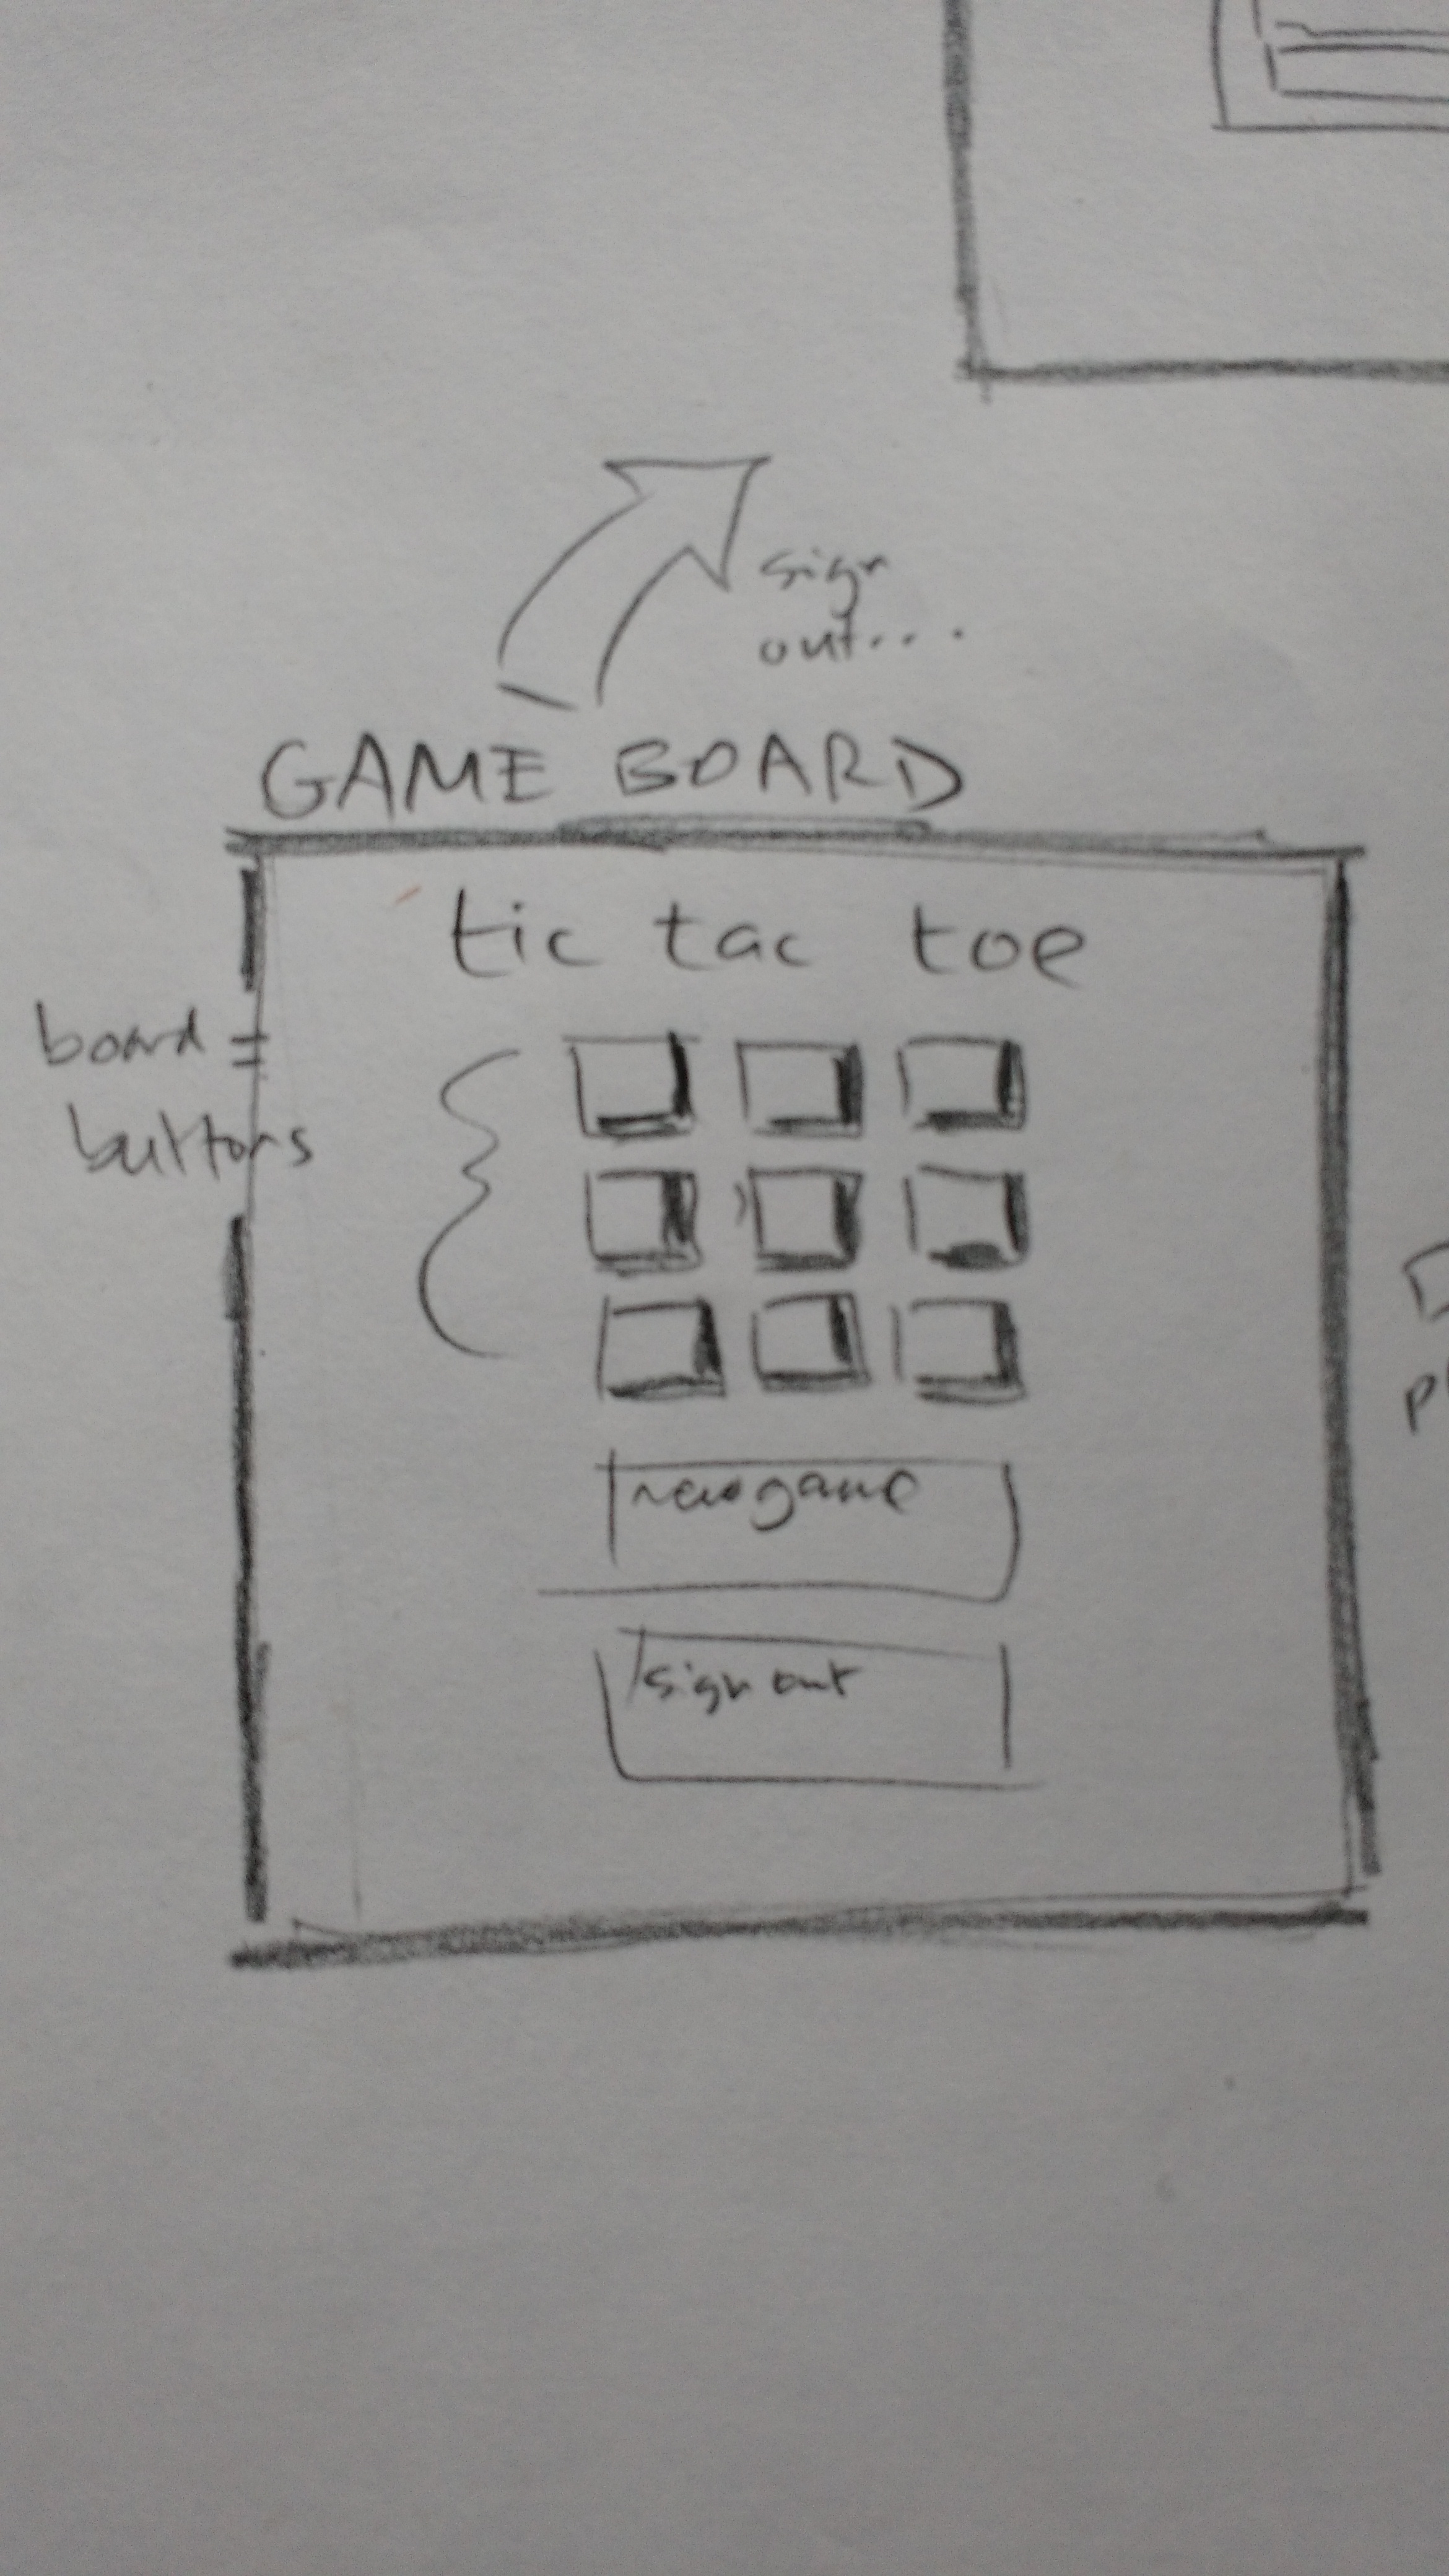 sign
out...
GAME BOARD
tic tac toe
board
buttons
new game
sign out